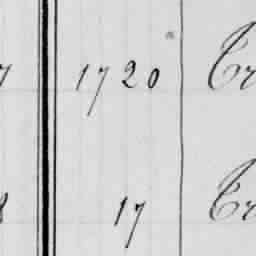 7 1720 Tr
8 17 Tr